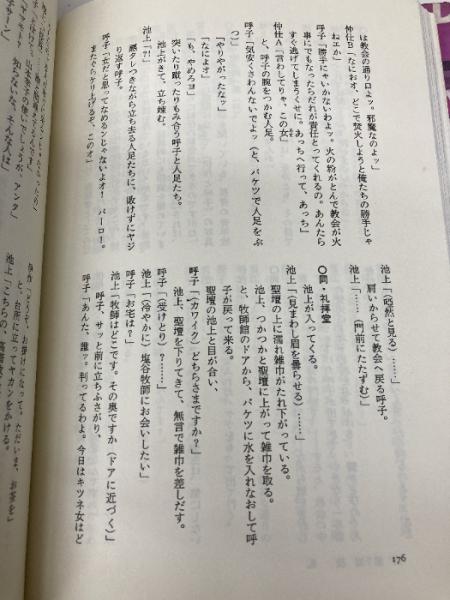 は教会の通り口よッ。邪魔なのよッ」
仲仕B「なにお、どこで焚火しようと俺たちの勝手じゃ
ねエか」
呼子「勝手にゃいかないわよッ。火の粉がとんで教会が火
事にでもなったらだれが責任とってくれるの。あんたら
すぐ逃げてしまうくせに。あっちへ行って、あっち」
仲仕A「言わしてりゃ、この女」
と、呼子の腕をつかむ人足。
呼子「気安くさわんないでよッ（と、バケツで人足をぶ
つ）」
「やりやがったなッ」
「なによオ」
「も、やめろヨ」
突いたり蹴ったりもみ合う呼子と人足たち。
池上がきて、立ち竦む。
池上「?!」
悪タレつきながら立ち去る人足たちに、敗けずにヤジ
り返す呼子。
呼子「女だと思ってなめるンじゃないよオ！　バーロー。
またぐらケリ上げるぞ、このオ」
池上「（唖然と見る）……」
肩いからせて教会へ戻る呼子。
池上「……（門前にたたずむ）」
〇同・礼拝堂
池上が入ってくる。
池上「（見まわし眉を曇らせる）……」
聖壇の上に濡れ雑巾がたれ下がっている。
池上、つかつかと聖壇に上がって雑巾を取る。
と、牧師館のドアから、バケツに水を入れなおして呼
子が戻って来る。
聖壇の池上と目が合い、
呼子「（カワイク）どちらさまですか？」
池上、聖壇を下りてきて、無言で雑巾を差しだす。
呼子「（受けとり）？……」
池上「（冷やかに）塩谷牧師にお会いしたい」
呼子「お宅は？」
池上「牧師はどこです。その奥ですか（ドアに近づく）」
呼子、サッと前に立ちふさがり、
呼子「あんた、誰ッ？　判ってるわよ。今日はキツネ女はど
176
と、台所に立ってヤカンをかける。